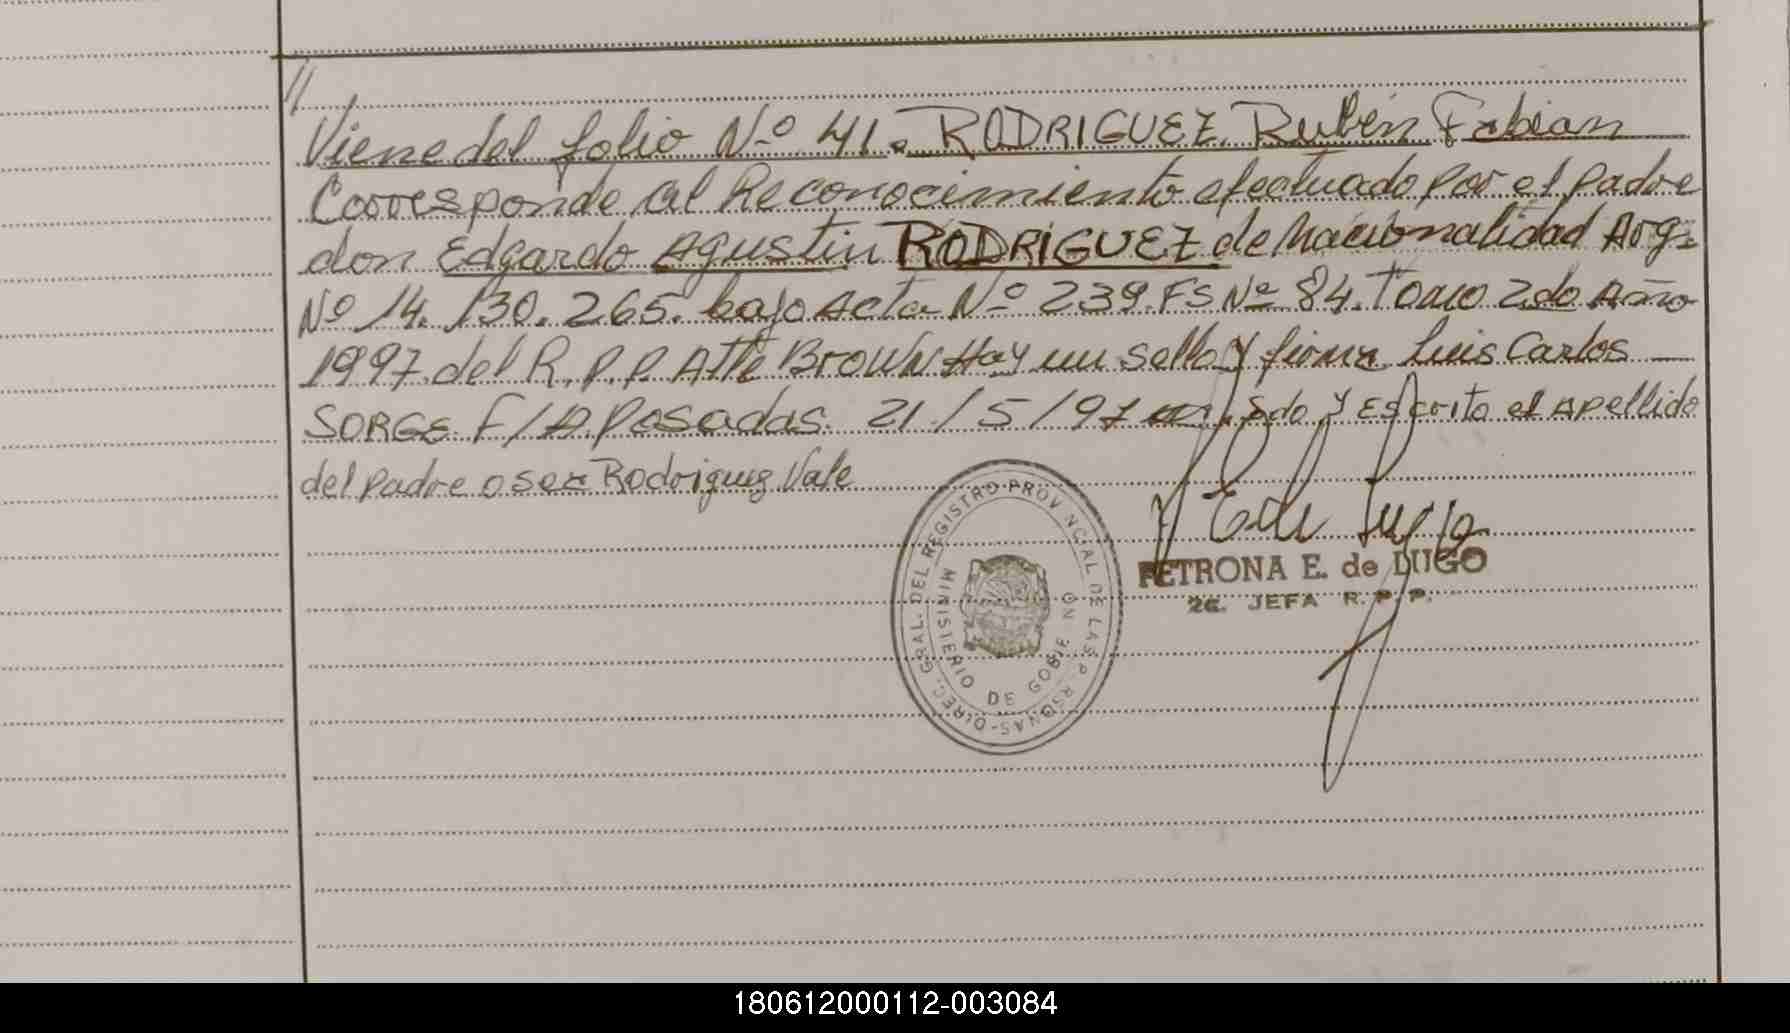 //
Viene del folio Nº 41. RODRIGUEZ Rubén Fabian
Corresponde al Reconocimiento efectuado por el padre
don Edgardo Agustin RODRIGUEZ de Nacionalidad Arg.
Nº 14.130.265. bajo Acta Nº 239. FS Nº 84. Tomo 2do Año
1997. del R.P.P. Alte Brown Hay un sello y firma Luis Carlos
SORGE F/D. Posadas. 21/5/97 y Escrito el Apellido
del padre o sea Rodriguez Vale
DIREC. GRAL. DEL REGISTRO PROVINCIAL DE LAS P RSONAS
MINISTERIO DE GOBIE NO
PETRONA E. de LUGO
2ª. JEFA R. P. P.
180612000112-003084